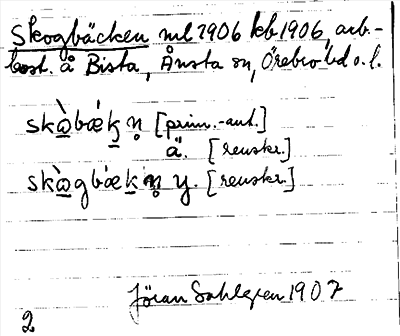 Skogbäcken ml 1906 kb 1906, arb.-
bost. å Bista, Ånsta sn, Örebro hd o. l.
skὰ̱bǽḵṇ [prim.-ant.]
ä. [renskr.]
skὰ̱gbǽḵṇ y. [renskr.]
Jöran Sahlgren 1907
2